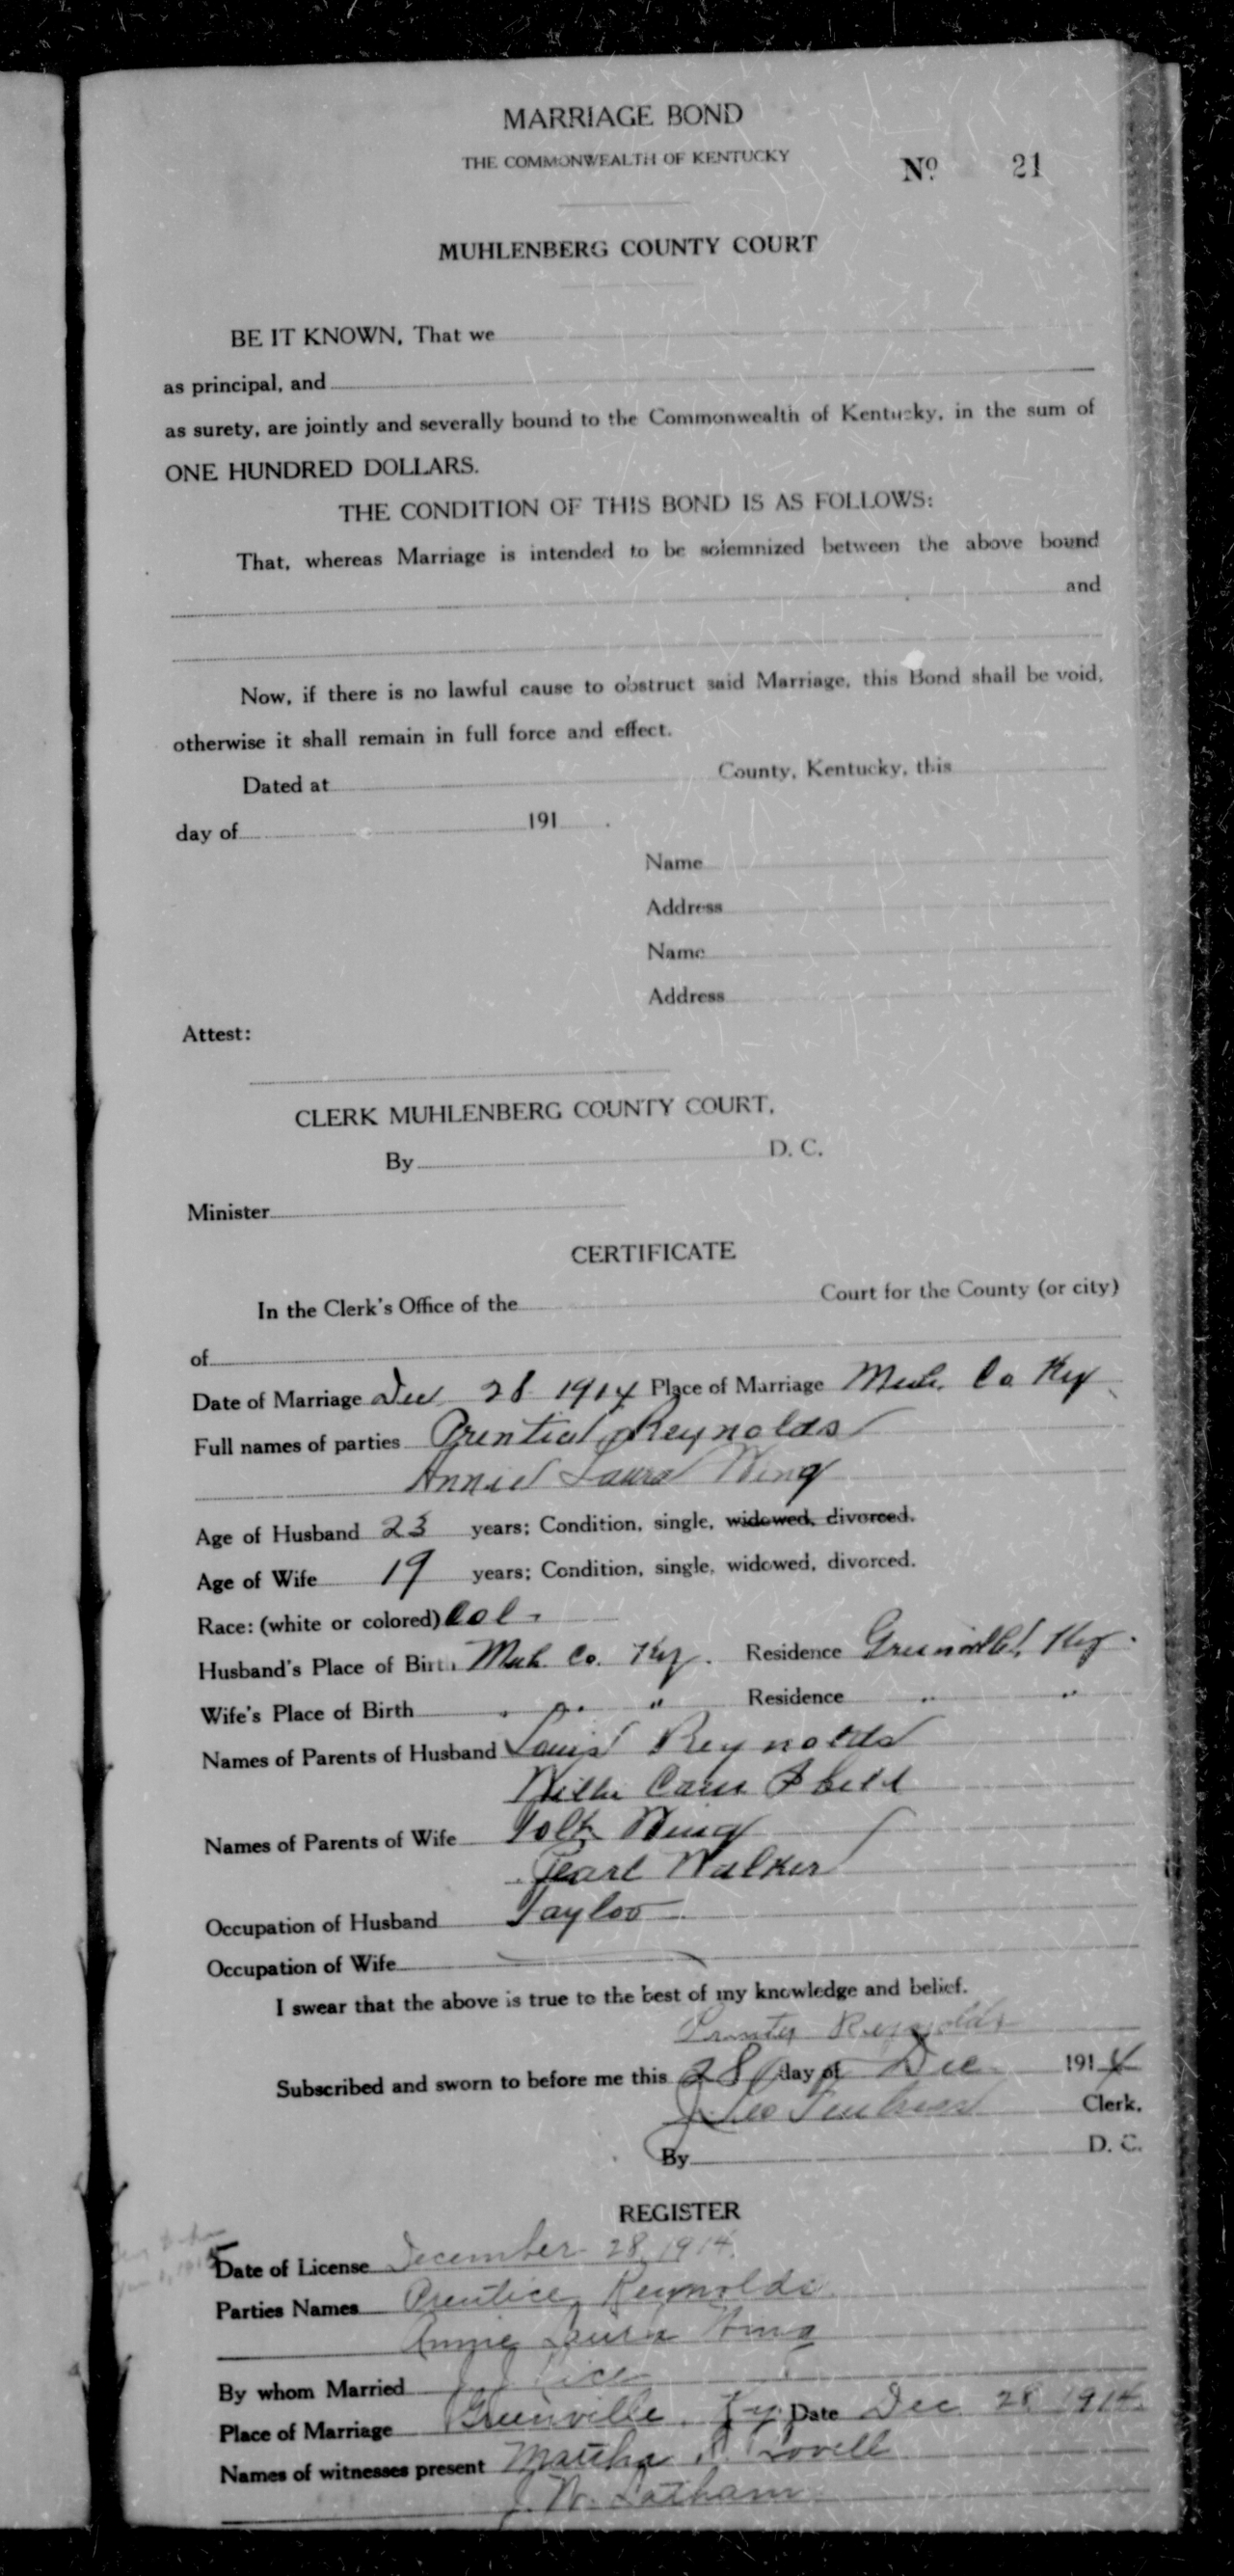 MARRIAGE BOND
THE COMMONWEALTH OF KENTUCKY
No. 21
MUHLENBERG COUNTY COURT
BE IT KNOWN, That we
as principal, and
as surety, are jointly and severally bound to the Commonwealth of Kentucky, in the sum of
ONE HUNDRED DOLLARS.
THE CONDITION OF THIS BOND IS AS FOLLOWS:
That, whereas Marriage is intended to be solemnized between the above bound
and
Now, if there is no lawful cause to obstruct said Marriage, this Bond shall be void,
otherwise it shall remain in full force and effect.
Dated at County, Kentucky, this
day of 191 .
Name
Address
Name
Address
Attest:
CLERK MUHLENBERG COUNTY COURT,
By D. C.
Minister
CERTIFICATE
In the Clerk's Office of the Court for the County (or city)
of
Date of Marriage Dec 28 1914 Place of Marriage Muh. Co Ky
Full names of parties Prentice Reynolds
Annie Laura Wing
Age of Husband 23 years; Condition, single, widowed, divorced.
Age of Wife 19 years; Condition, single, widowed, divorced.
Race: (white or colored) Col.
Husband's Place of Birth Muh. Co. Ky. Residence Greenville, Ky.
Wife's Place of Birth " " " Residence " "
Names of Parents of Husband Louis Reynolds
Willie
Names of Parents of Wife Polk Wing
Pearl Walker
Occupation of Husband Taylor
Occupation of Wife
I swear that the above is true to the best of my knowledge and belief.
Reynolds
Subscribed and sworn to before me this 28 day of Dec 1914
J. Leo Clerk.
By D. C.
REGISTER
Date of License December 28, 1914.
Parties Names Prentice Reynolds
Annie Laura Wing
By whom Married
Place of Marriage Greenville, Ky. Date Dec 28 1914.
Names of witnesses present Martha Lovell
J. W. Latham